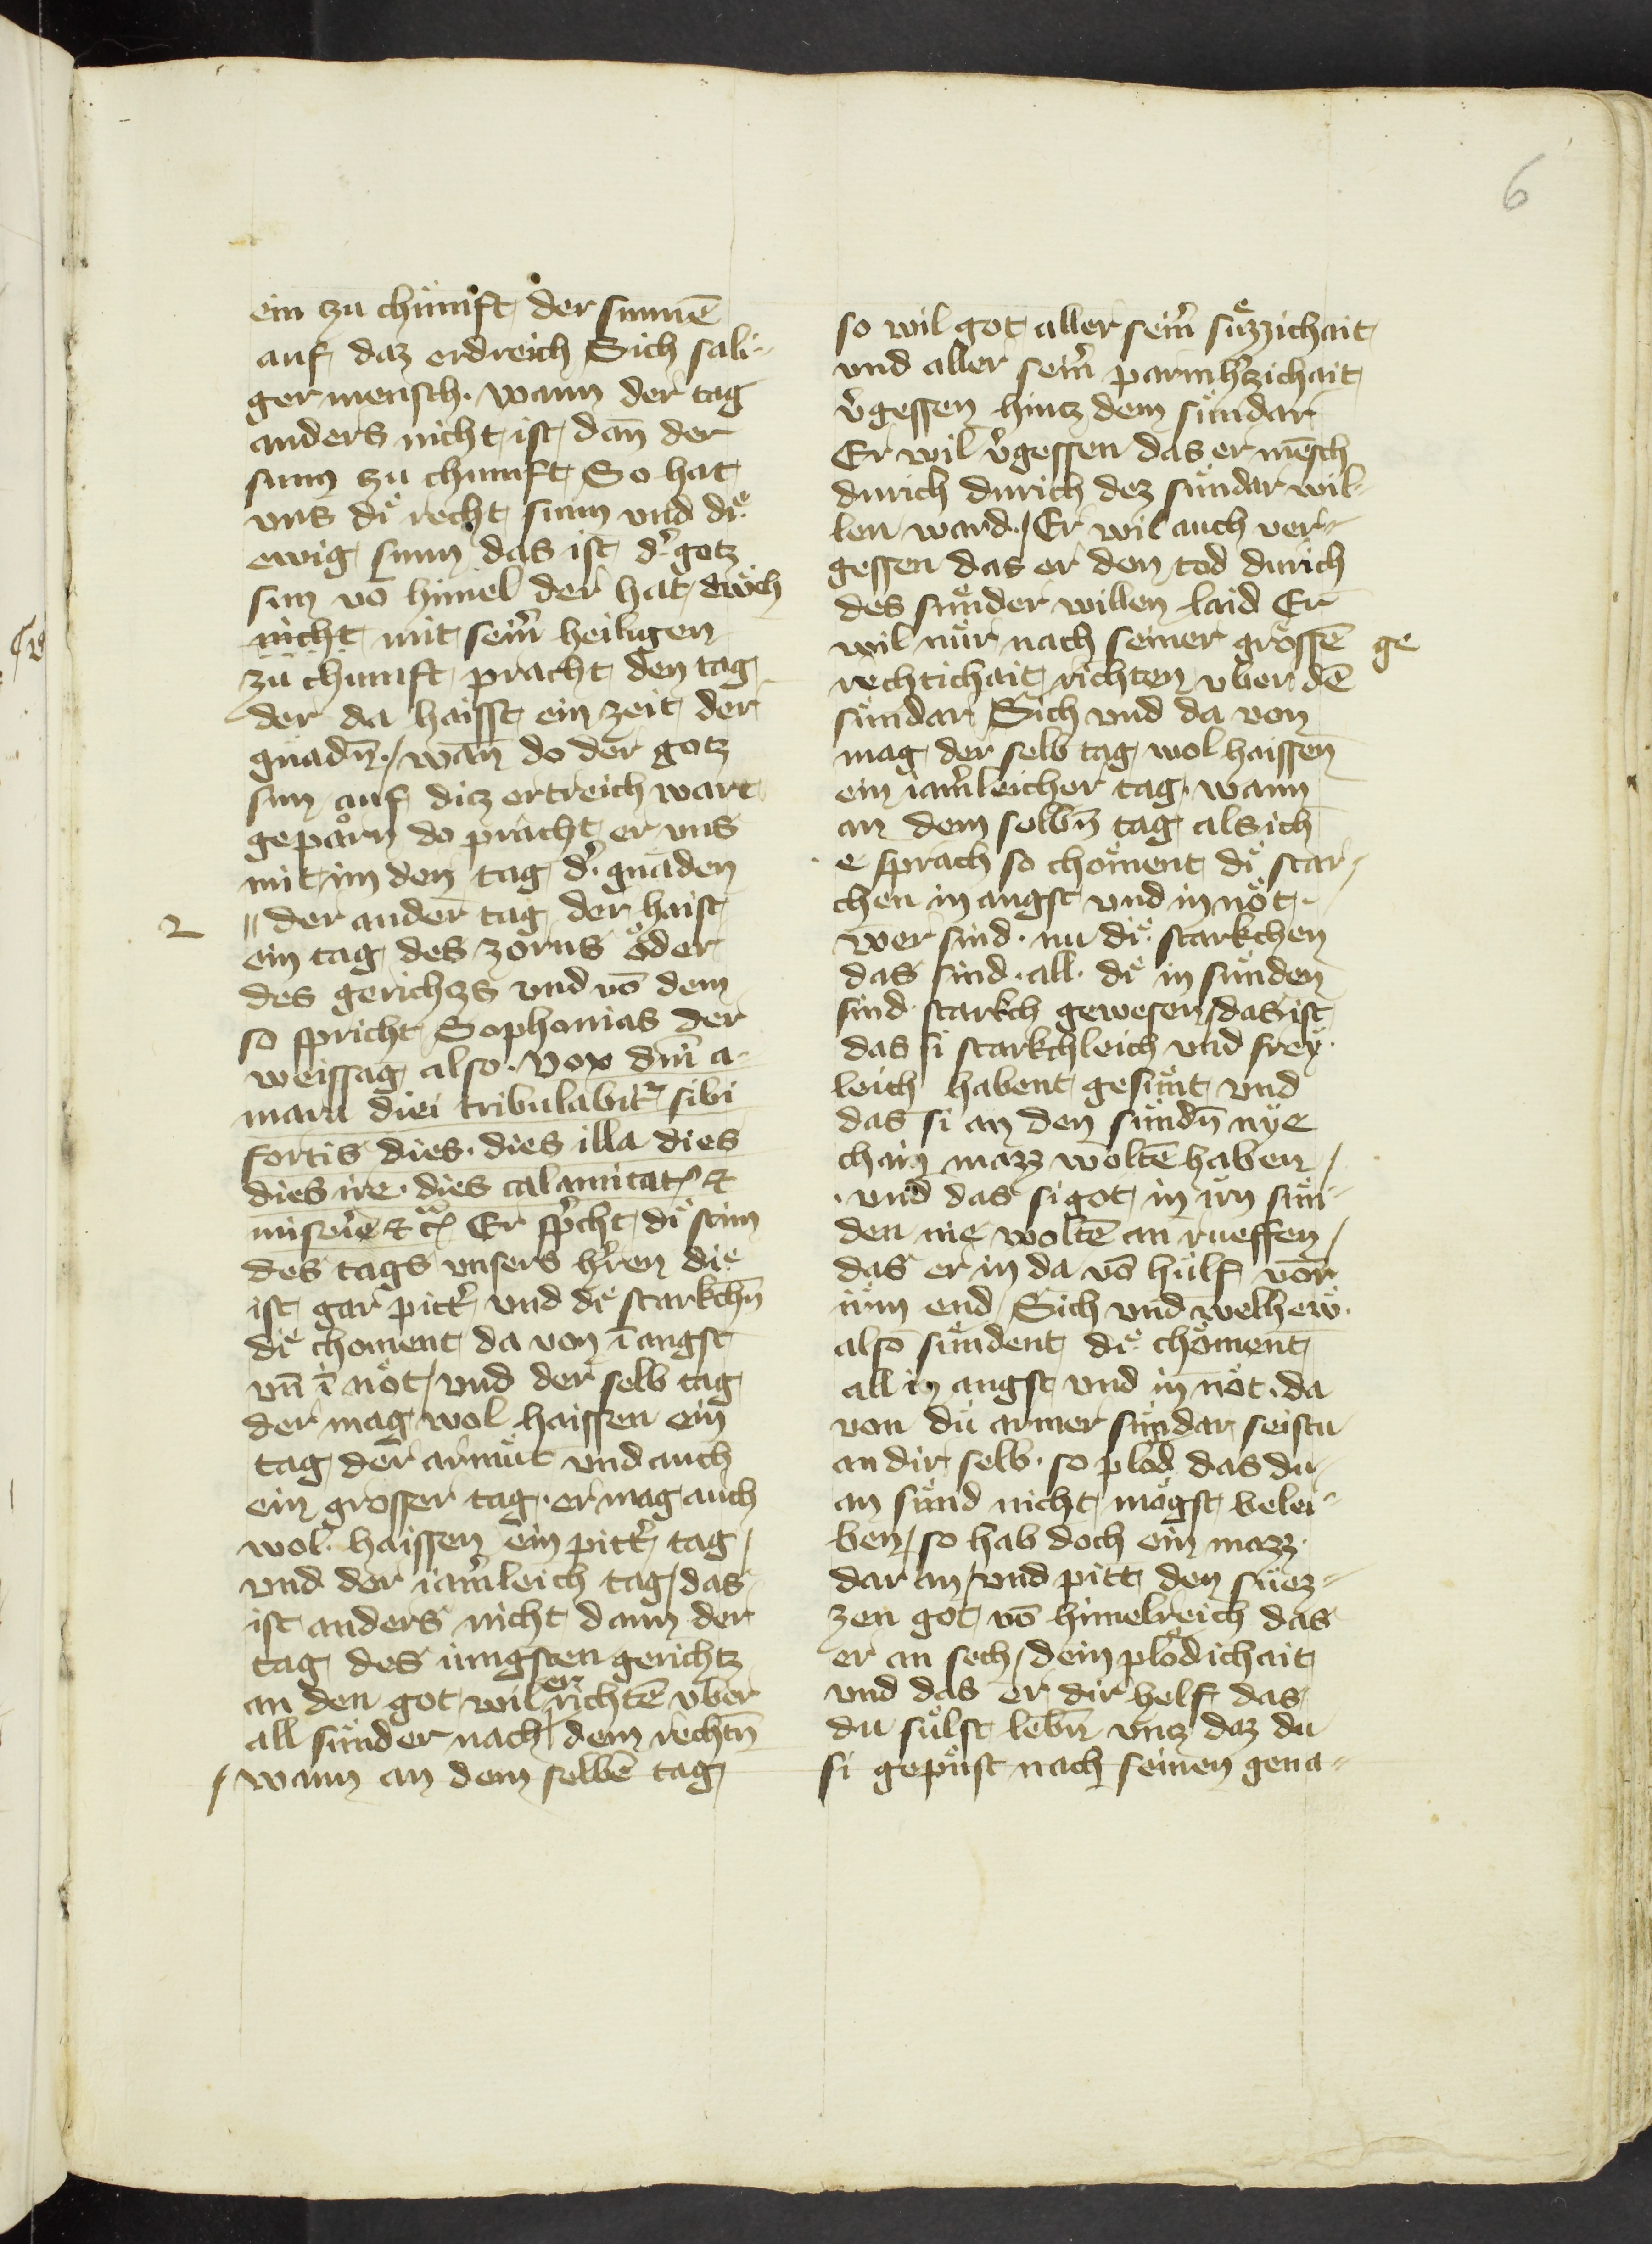 6
ein zu chümft der sunnē
auf daz erdreich Sich sali-
ger mensch. wann der tag
anders nicht ist dan̄ der
sunn zu chumft So hat
vns dı̈ recht sunn vnd dı̈
ewig sunn das ist d̾ gotz
sun vō himel der hat
nicht mit seim̄ heiligen
zu chumft pracht den tag
der da haisst ein zeit der
gnadn̄. / wan̄ do der gotz
sun auf ditz ertreich wart
geparn do pracht er vns
mit im den tag d̾ gnaden
2
// der ander tag der haist
ein tag des zorns oder
des gerichtzs vnd vō dem
so spricht Sophonias der
weissag also. Vox dn̄i a-
mara diei tribulabit̾ sibi
fortis dies. dies illa dies
dies ire. dies calamitat̾ et
mis̾ie et c̾ Er sp̾cht dı̈ stim
des tags vnsers h̾ren die
ist gar pitt̾ vnd dı̈ starkchn̄
dı̈ choment da von ī angst
vn̄ ī nöt / vnd der selb tag
der mag wol haissen ein
tag der armüt vnd auch
ein grosser tag. er mag auch
wol haissen ein pitt̾ tag /
vnd der iam̾leich tag / das
ist anders nicht dann der
tag des iungsten gerichtz
an den got wil er richtē vber
all sünder nach dem rechtn̄
/ wann an dem selbē tag
so wil got aller seim̾ süzzichait
vnd aller seim̾ parmh̾tzichait
v̾gessen hintz dem sündar
Er wil v̾gessen das er mēsch
durich durich dez sündar wil-
len ward. / Er wil auch ver-
gessen das er den tod durich
des sünder willen laid Er
wil nür nach seiner grossē ge
rechtichait richten vber dē
sündar Sich vnd da von
mag der selb tag wol haissen
ein iam̾leicher tag. wann
an dem selbn̄ tag als ich
e sprach so chöment dı̈ star-
chen in angst vnd in nöt.
wer sind. nu dı̈ starkchen
das sind. all. dı̈ in sünden
sind starkch gewesen / das ist
das si starkchleich vnd frey
leich habent gesünt vnd
das si an den sündn̄ nye
chain mazz woltē haben /
. vnd das si got in irn sün-
den nie woltē an rueffen /
das er in da vō hulf vor
irm end / Sich vnd welhew
also sündent dı̈ chöment
all in angst vnd in nöt. da
von dü armer sündar seistu
an dir selb. so plöd das du
an sünd nicht mögst belei-
ben / so hab doch ein mazz
dar an / vnd pitt den süez-
zen got vō himelreich das
er an sech / dein plödichait
vnd das er dir helf das
du sülst lebn̄ vntz daz du
si gepüst nach seinen gena-